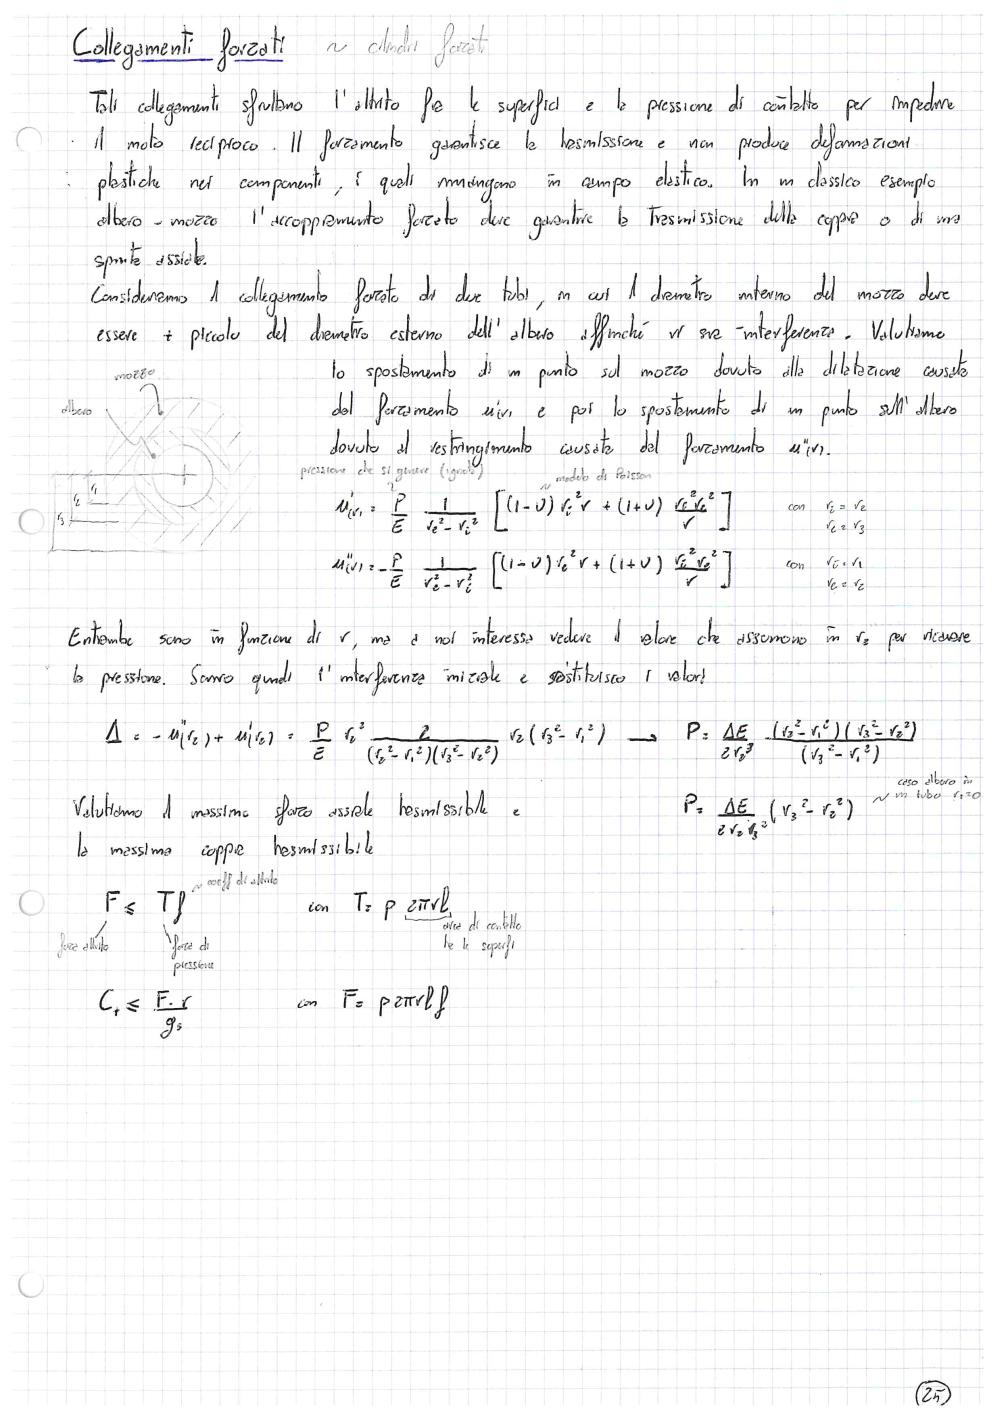 Collegamenti forzati ~ cilindri forzati
Tali collegamenti sfruttano l'attrito fra le superfici e la pressione di contatto per impedire
il moto reciproco. Il forzamento garantisce la trasmissione e non produce deformazioni
plastiche nei componenti, i quali rimangono in campo elastico. In un classico esempio
albero - mozzo l'accoppiamento forzato deve garantire la trasmissione della coppia o di una
spinta assiale.
Consideriamo il collegamento forzato di due tubi, in cui il diametro interno del mozzo deve
essere + piccolo del diametro esterno dell'albero affinché vi sia interferenza. Valutiamo
lo spostamento di un punto sul mozzo dovuto alla dilatazione causata
dal forzamento u'(r) e poi lo spostamento di un punto sull'albero
dovuto al restringimento causato dal forzamento u''(r).
mozzo
albero
r1
r2
r3
pressione che si genera (ignota)
~ modulo di Poisson
u'(r) = P/E 1/(re² - ri²) [(1-υ) ri² r + (1+υ) ri² re²/r] con ri = r2
re = r3
u''(r) = - P/E 1/(re² - ri²) [(1-υ) re² r + (1+υ) ri² re²/r] con ri = r1
re = r2
Entrambe sono in funzione di r, ma a noi interessa vedere il valore che assumono in r2 per ricavare
la pressione. Scrivo quindi l'interferenza iniziale e sostituisco i valori
Δ = - u''(r2) + u'(r2) = P/E r2² 2/((r2² - r1²)(r3² - r2²)) r2 (r3² - r1²) → P = ΔE/(2 r2³) (r2² - r1²)(r3² - r2²)/(r3² - r1²)
caso albero in
~ un tubo r1=0
Valutiamo il massimo sforzo assiale trasmissibile e
P = ΔE/(2 r2 r3²) (r3² - r2²)
la massima coppia trasmissibile
~ coeff di attrito
F ≤ T f con T = p 2πrl
forza attrito
forza di
pressione
area di contatto
tra le superfi
Ct ≤ F·r/gs con F = p 2πrl f
25